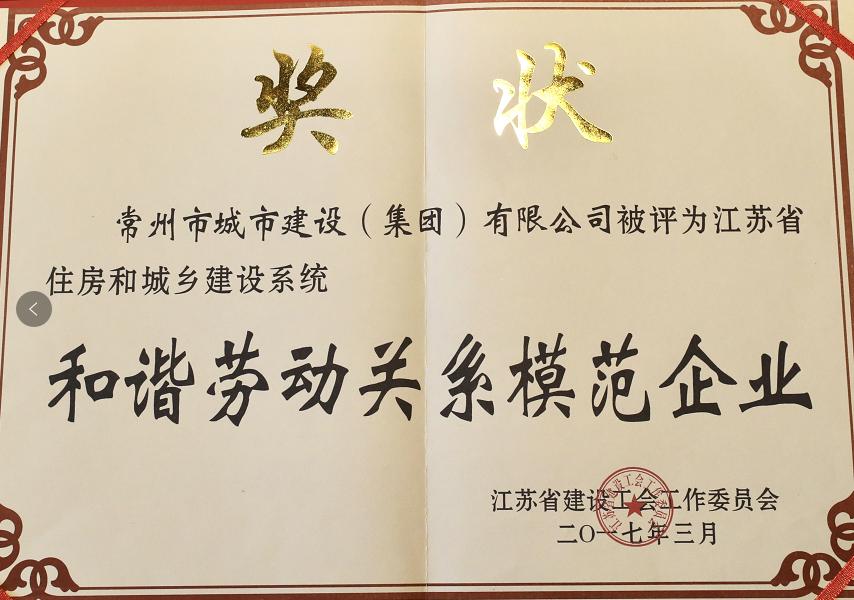 奖状
常州市城市建设（集团）有限公司被评为江苏省
住房和城乡建设系统
和谐劳动关系模范企业
江苏省建设工会工作委员会
二〇一七年三月
江苏省建设工会工作委员会